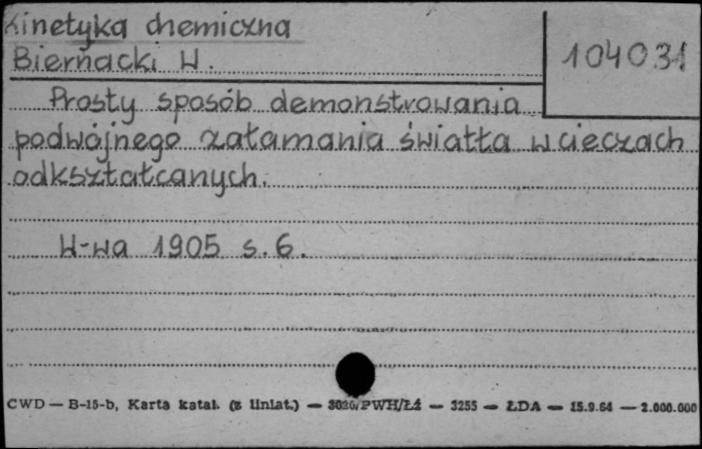 Kinetyka chemiczna
104031
Biernacki W.
Prosty sposób demonstrowania
podwójnego załamania światła w cieczach
odkształcanych.
W-wa 1905 s. 6.
CWD — B-15-b, Karta katal. (z liniat.) — 3026/PWH/Łź — 3255 — ŁDA — 15.9.64 — 2.000.000